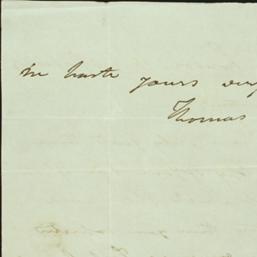 In haste yours very
Thomas